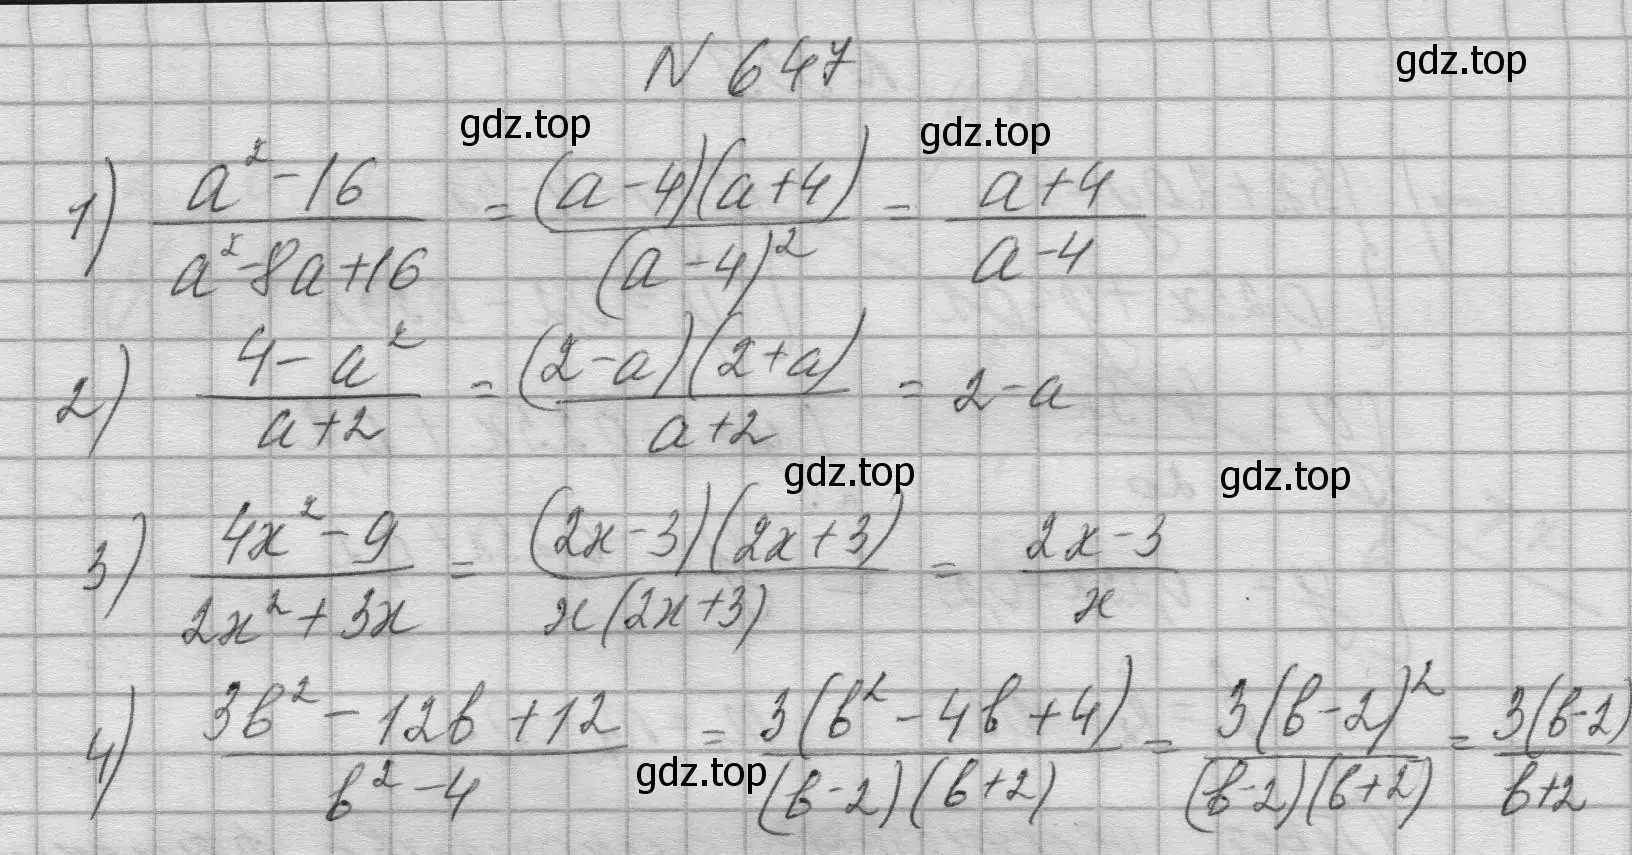 N 647
gdz.top
gdz.top
gdz.top
1) (a²-16)/(a²-8a+16) = ((a-4)(a+4))/((a-4)²) = (a+4)/(a-4)
2) (4-a²)/(a+2) = ((2-a)(2+a))/(a+2) = 2-a
gdz.top
gdz.top
3) (4x²-9)/(2x²+3x) = ((2x-3)(2x+3))/(x(2x+3)) = (2x-3)/x
4) (3b²-12b+12)/(b²-4) = (3(b²-4b+4))/((b-2)(b+2)) = (3(b-2)²)/((b-2)(b+2)) = (3(b-2))/(b+2)
gdz.top